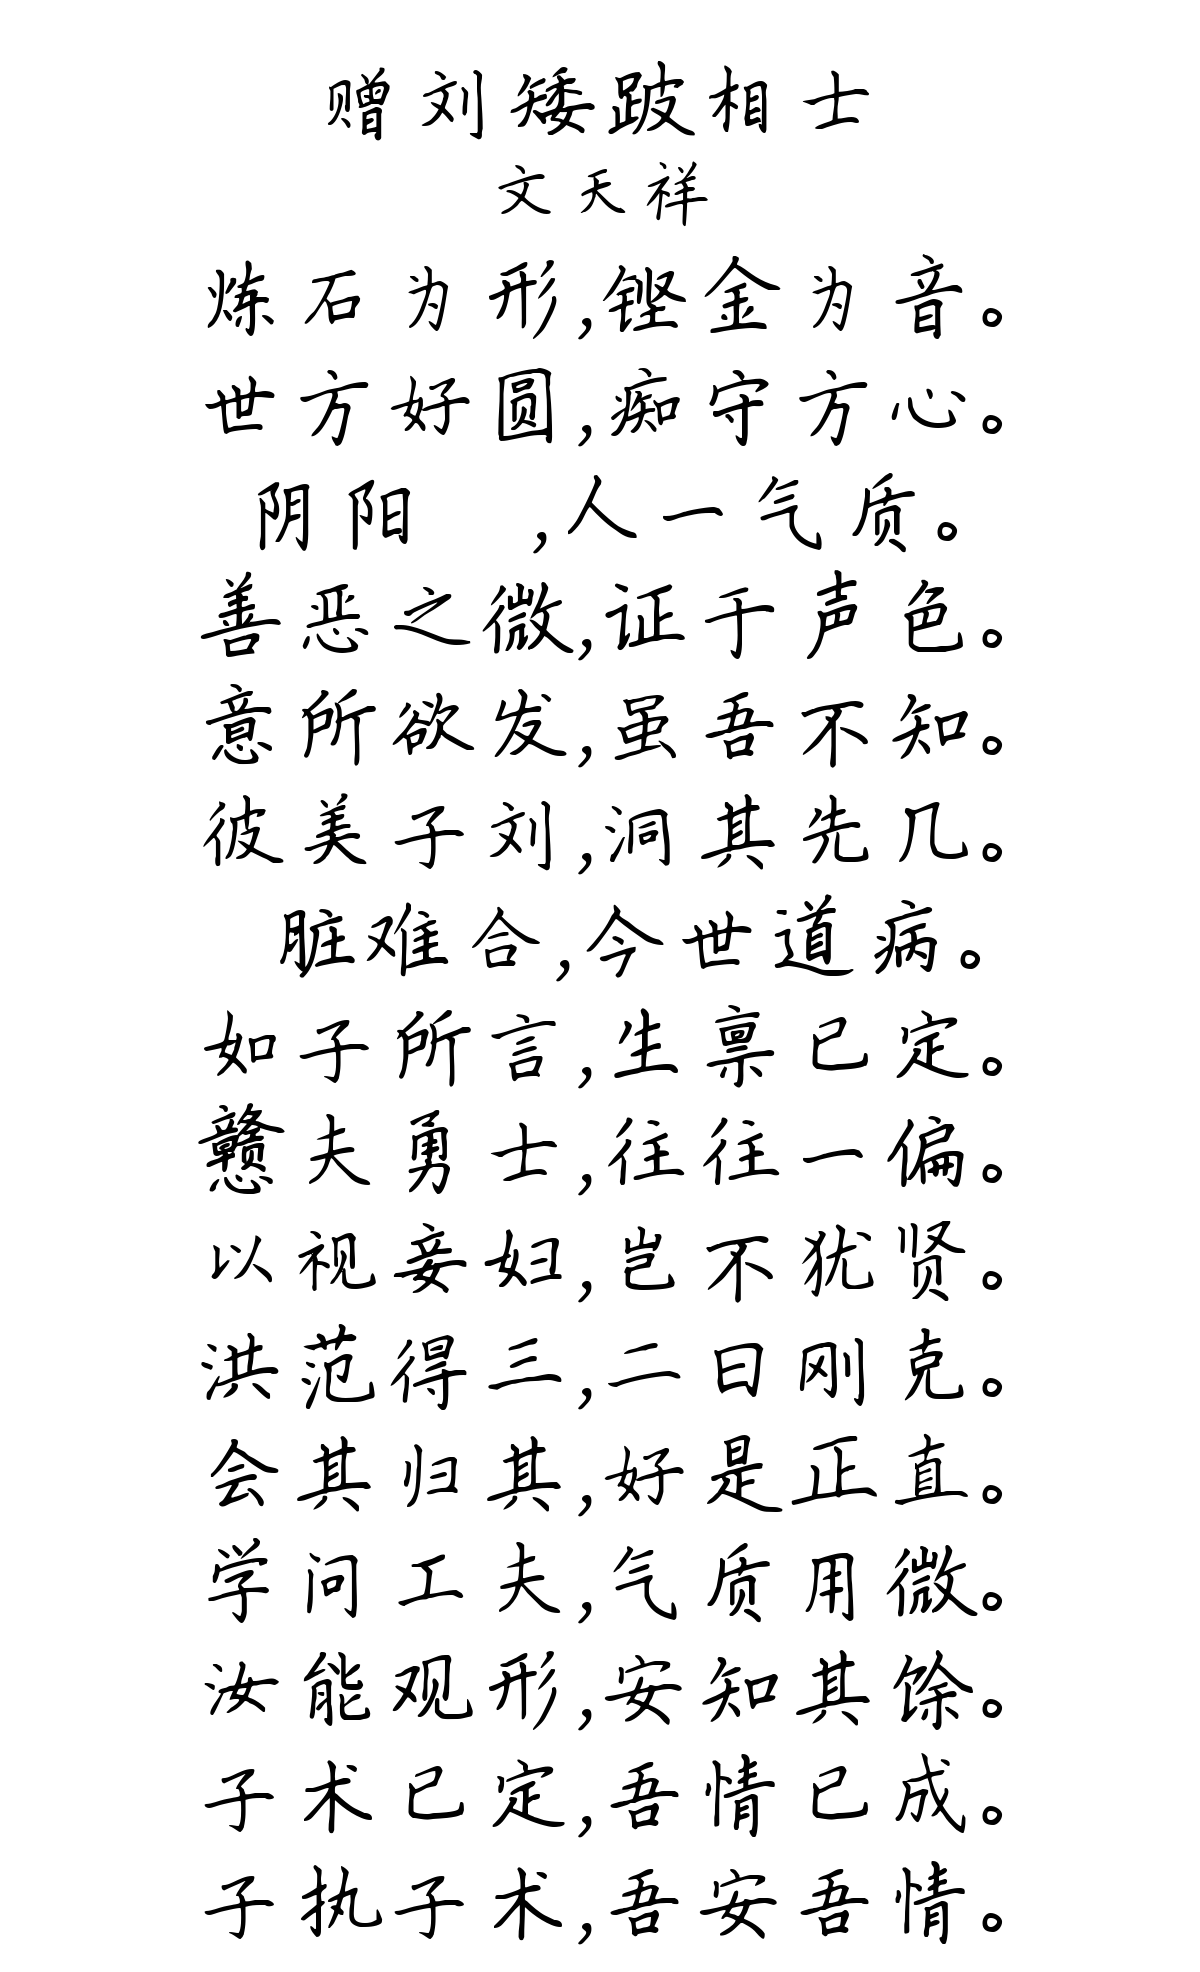 赠刘矮跛相士
文天祥
炼石为形,铿金为音。
世方好圆,痴守方心。
阴阳 ,人一气质。
善恶之微,证于声色。
意所欲发,虽吾不知。
彼美子刘,洞其先几。
脏难合,今世道病。
如子所言,生禀已定。
戆夫勇士,往往一偏。
以视妾妇,岂不犹贤。
洪范得三,二曰刚克。
会其归其,好是正直。
学问工夫,气质用微。
汝能观形,安知其馀。
子术已定,吾情已成。
子执子术,吾安吾情。